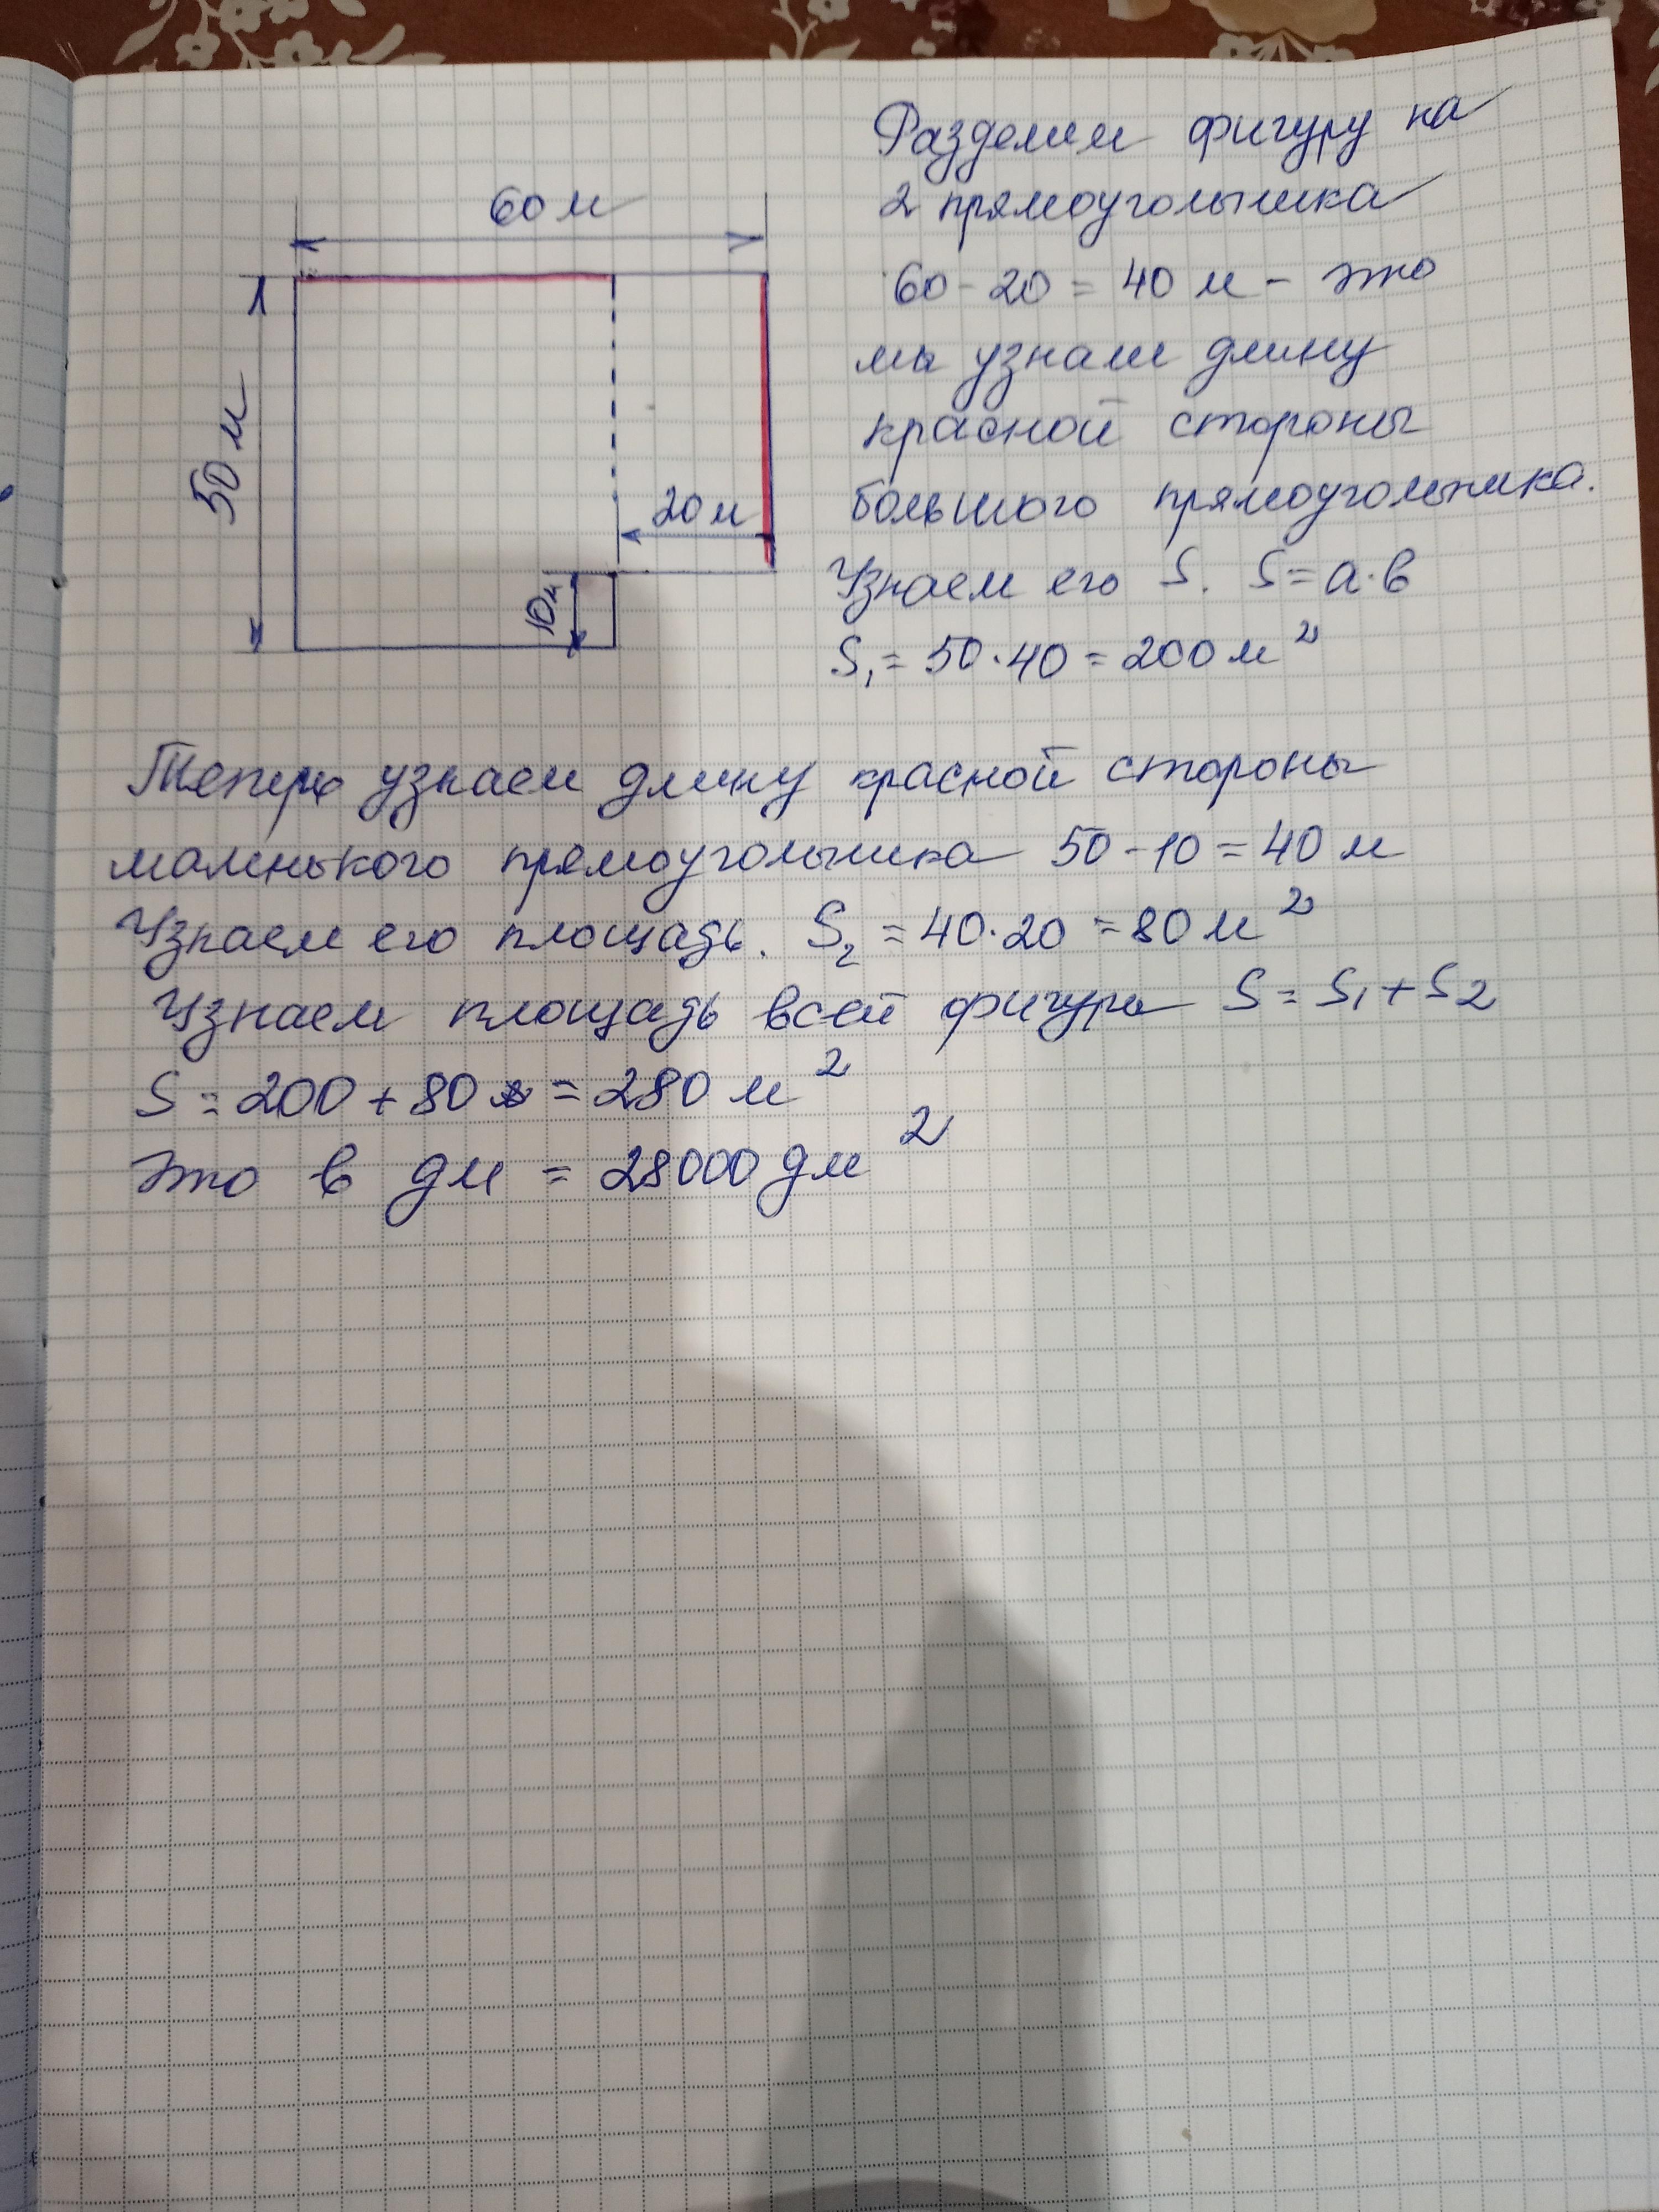 60 м
50 м
20 м
10 м
Разделим фигуру на
2 прямоугольника
60 - 20 = 40 м - это
мы узнали длину
красной стороны
большого прямоугольника.
Узнаем его S. S = a·в
S₁ = 50·40 = 200 м²
Теперь узнаем длину красной стороны
маленького прямоугольника 50 - 10 = 40 м
Узнаем его площадь. S₂ = 40·20 = 80 м²
Узнаем площадь всей фигуры S = S₁ + S2
S = 200 + 80 = 280 м²
Это в дм = 28000 дм²